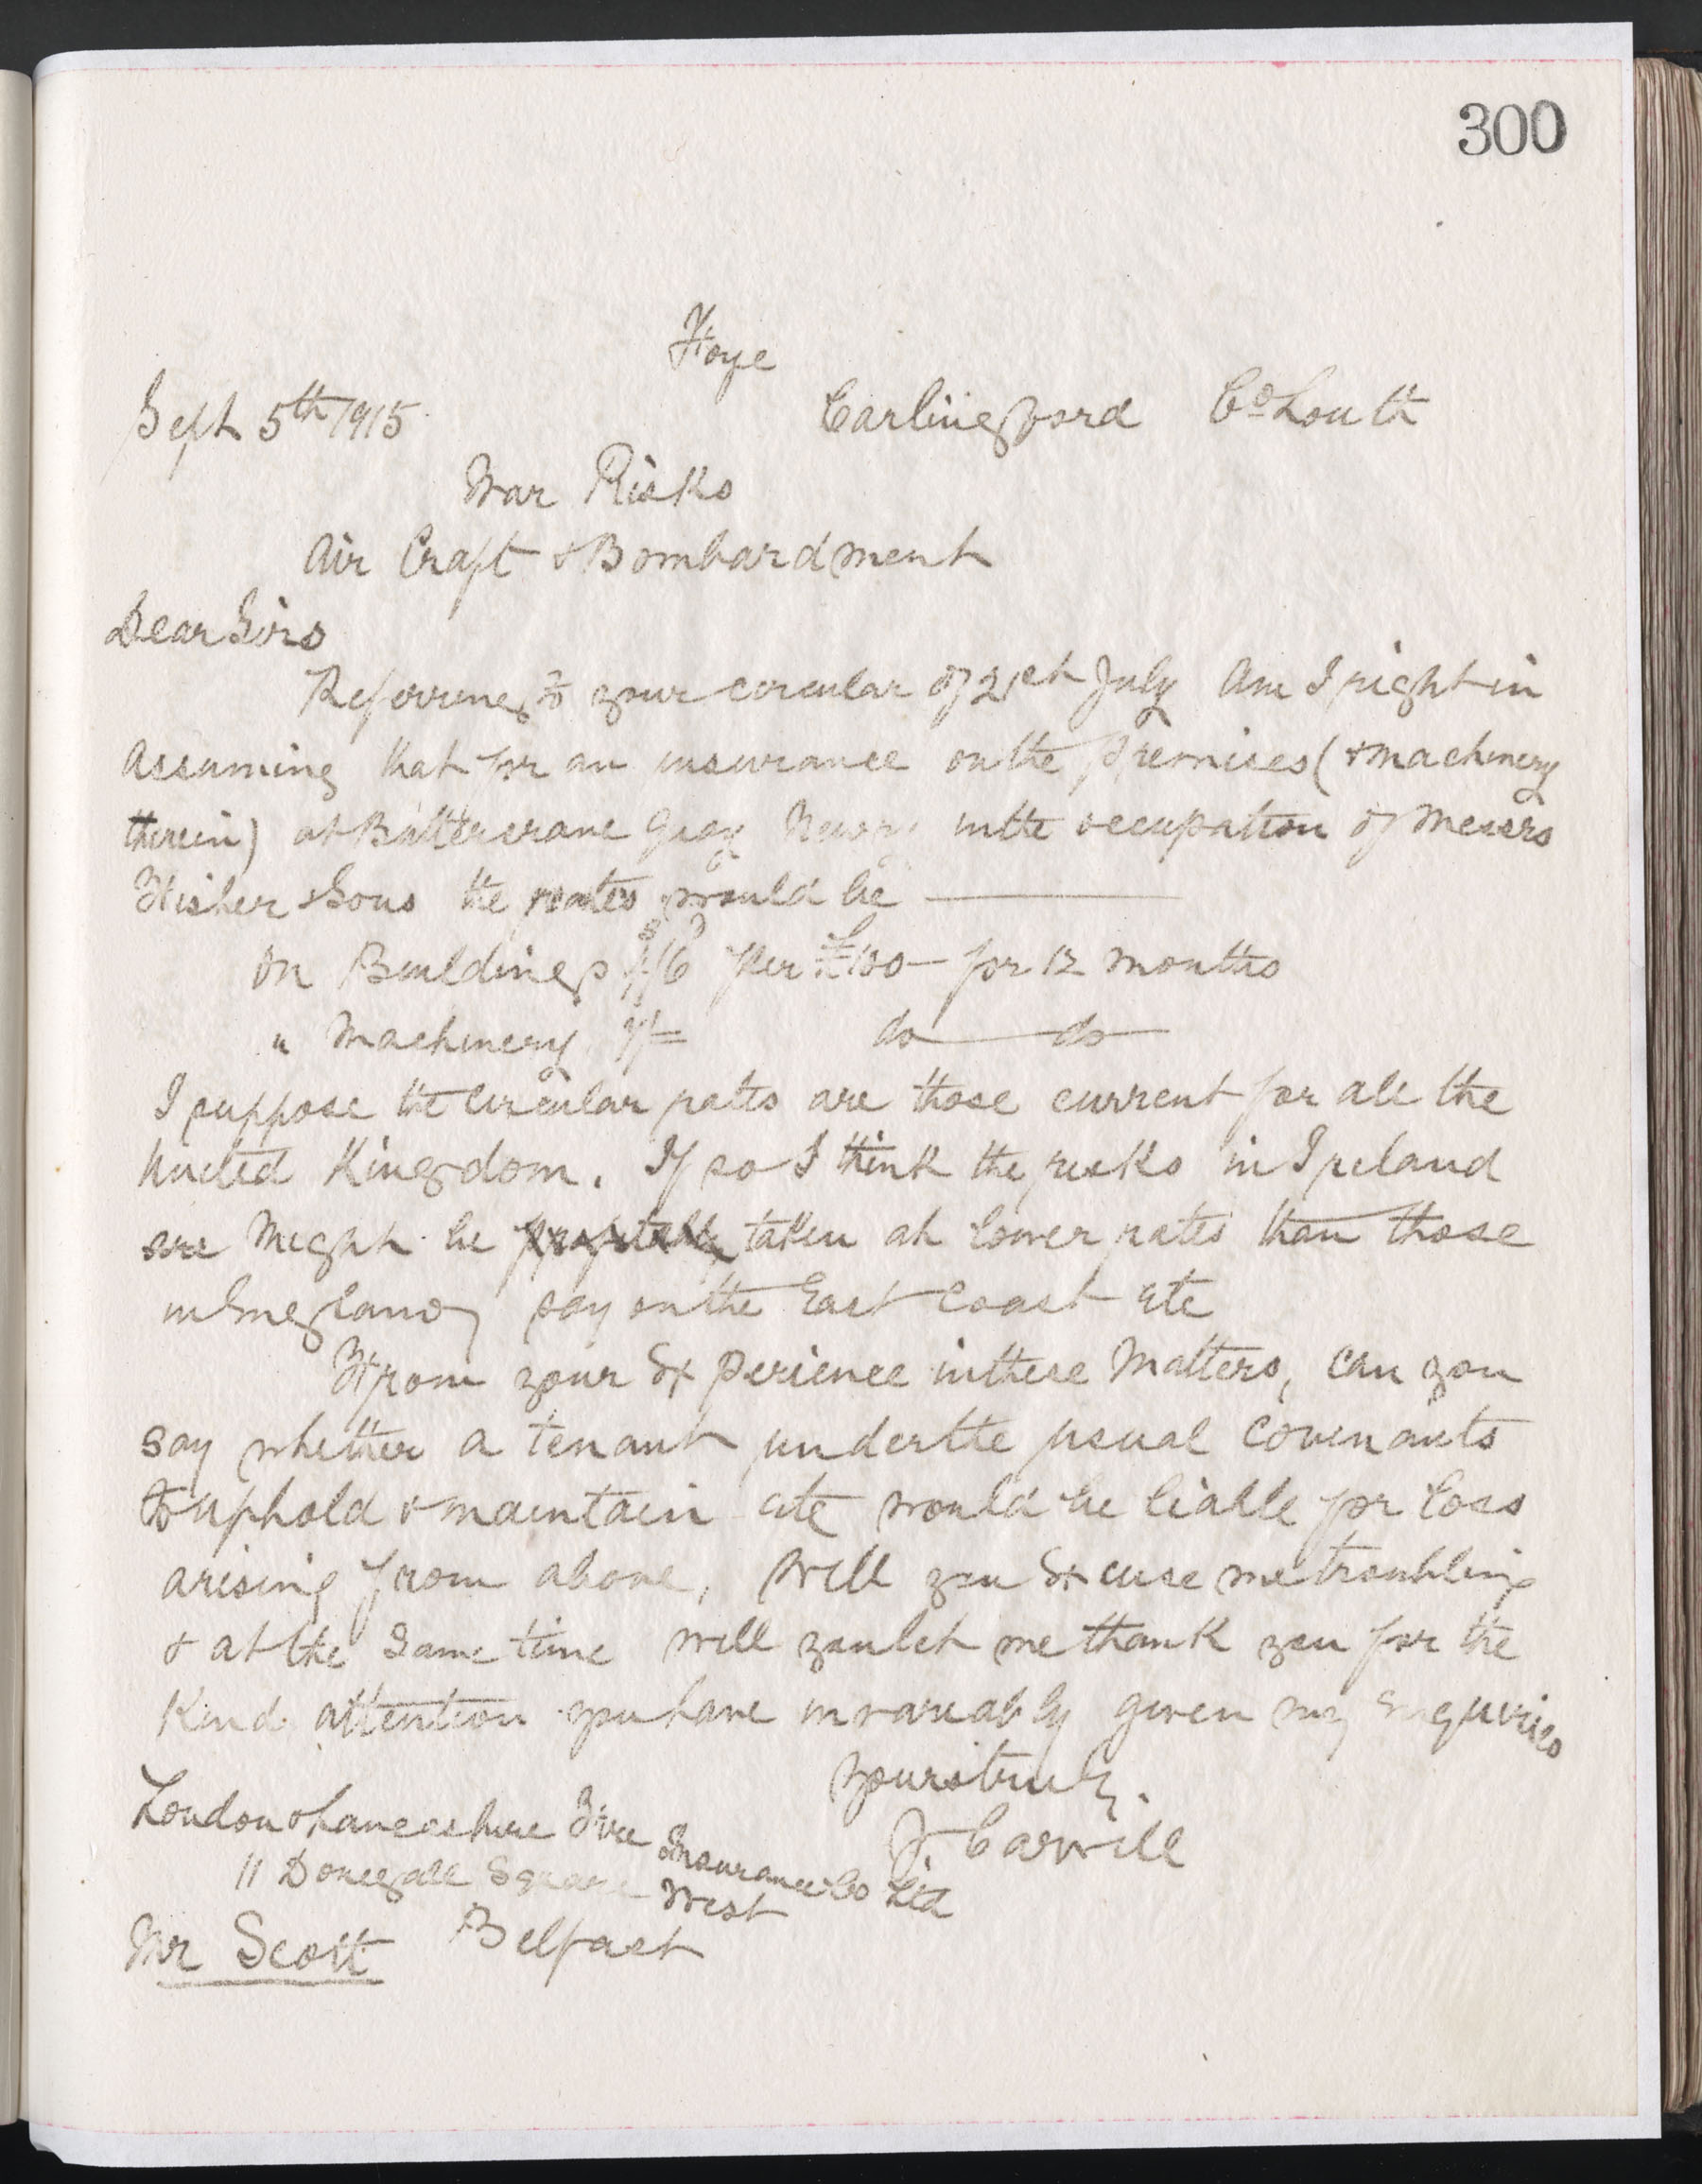 300
Foye
Sept 5th 1915 Carlingford Co Louth
War Risks
Air Craft & Bombardment
Dear Sirs
Referring to your circular of 21st July Am I right in
assuming that for an insurance on the premises (& machinery
therein) at Buttercrane Quay Newry in the occupation of Messrs
Fisher & Sons the rates would be
On Buildings /6 per £100 — for 12 months
" Machinery do — do
I suppose the circular rates are those current for all the
United Kingdom. If so I think the risks in Ireland
are might be profitably taken at lower rates than those
in England say on the East Coast etc
From your Experience in these Matters, can you
say whether a tenant under the usual covenants
to uphold & maintain etc would be liable for loss
arising from above, Will you Excuse me troubling
& at the same time will you let me thank you for the
kind attention you have invariably given my Enquiries
Yours truly.
J. Carvill
London & Lancashire Fire Insurance Co Ltd
11 Donegall Square West
Mr Scott Belfast